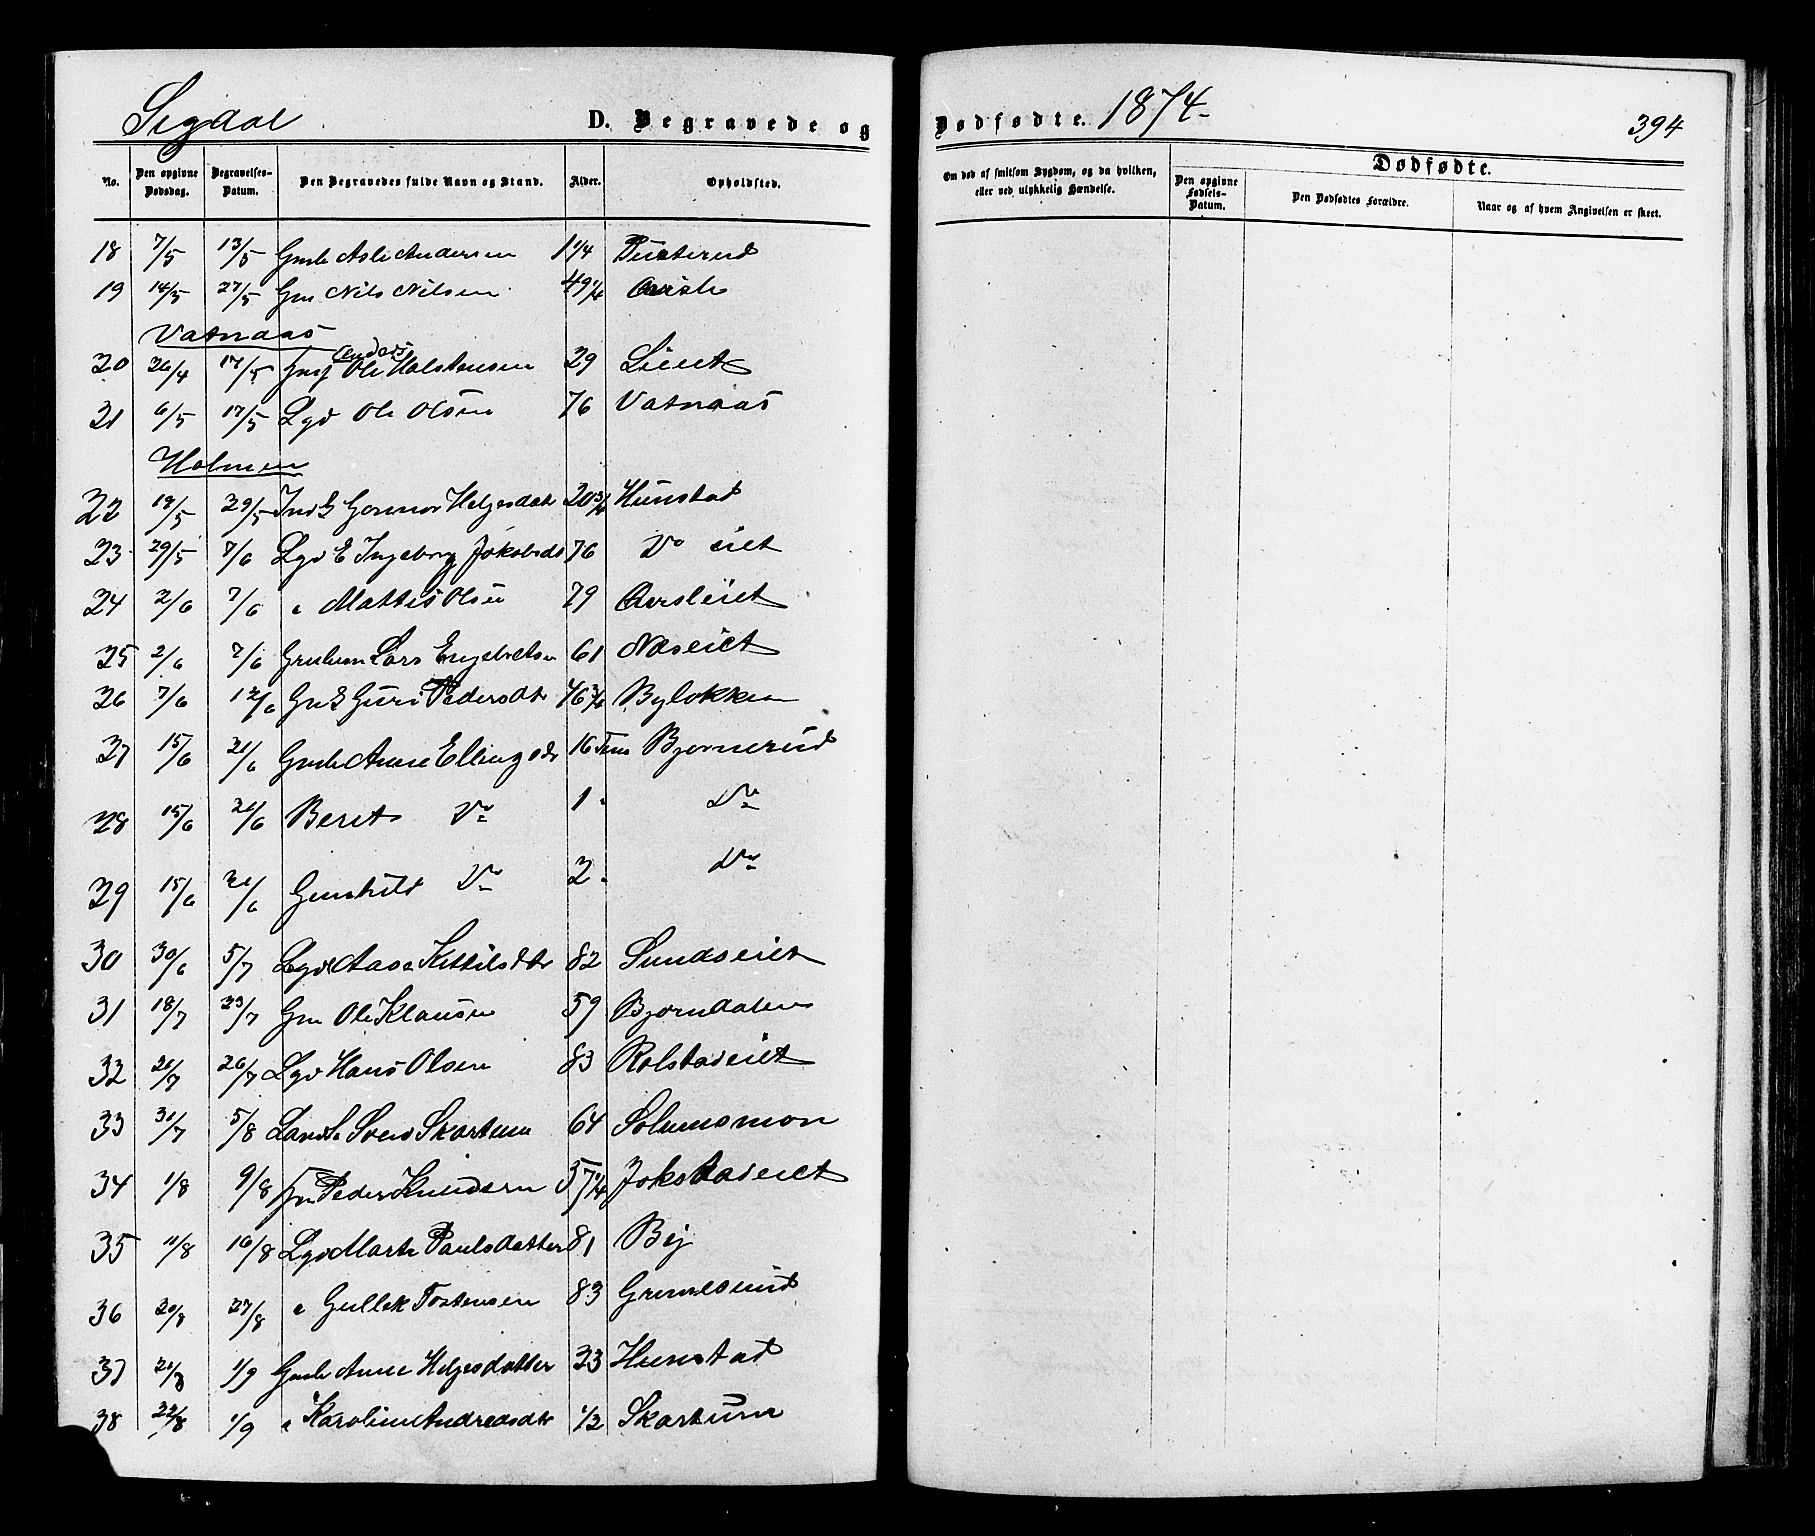 Sigdal
D. Begravede og
Dødfødte. 1874.
394
No. Den opgivne Dødsdag. Begravelses-Datum. Den Begravedes fulde Navn og Stand. Alder. Opholdsted.
Om død af smitsom Sygdom, og da hvilken, eller ved ulykkelig Hændelse.
Dødfødte.
Den opgivne Fødsels-Datum. Den Dødfødtes Forældre. Naar og af hvem Angivelsen er skeet.
18 7/5 13/5 Gmb Asle Andersen 1 1/4
19 14/5 27/5 Gm Nils Nilsen 49 1/4
Vatnaas
Anders
20 26/4 17/5 Ole Halstensen 29 Lieiet
21 6/5 17/5 Lgd Ole Olsen 76 Vatnaas
Holmen
22 19/5 29/5 Ind G Gonnor Helgesdatr 20 3/4 Hunstad
23 29/5 7/6 Lgd E Ingeborg Jokobsdt 76 Do eiet
24 2/6 7/6 " Mattis Olsen 79
25 2/6 7/6 Lars Engebretsen 61 Næseiet
26 7/6 12/6 Gm E Guri Pedersdtr 46 3/4 Byløkken
27 15/6 21/6 Gmb Anne Ellingsdr 16 Bjørnerud
28 15/6 21/6 Berit Do 1 " Do
29 15/6 21/6 Gunhild Do 2 " Do
30 30/6 5/7 Lgd Aase Kittilsdtr 82 Sundseiet
31 18/7 23/7 Gm Ole Klausen 59 Bjørndalen
32 21/7 26/7 Lgd Hans Olsen 83 Rolstadeiet
33 31/7 5/8 Sven Skartum 64 Solumsmoen
34 1/8 9/8 Gm Peder Knudsen 57 1/4 Jokstadeiet
35 11/8 16/8 Lgd Marte Paulsdatter 81 By
36 20/8 27/8 " Gullek Tostensen 83 Grønsund
37 21/8 1/9 Gmb Anne Helgesdatter 23 Hunstad
38 22/8 1/9 " Karoline Andreasdtr 1/2 Skartum